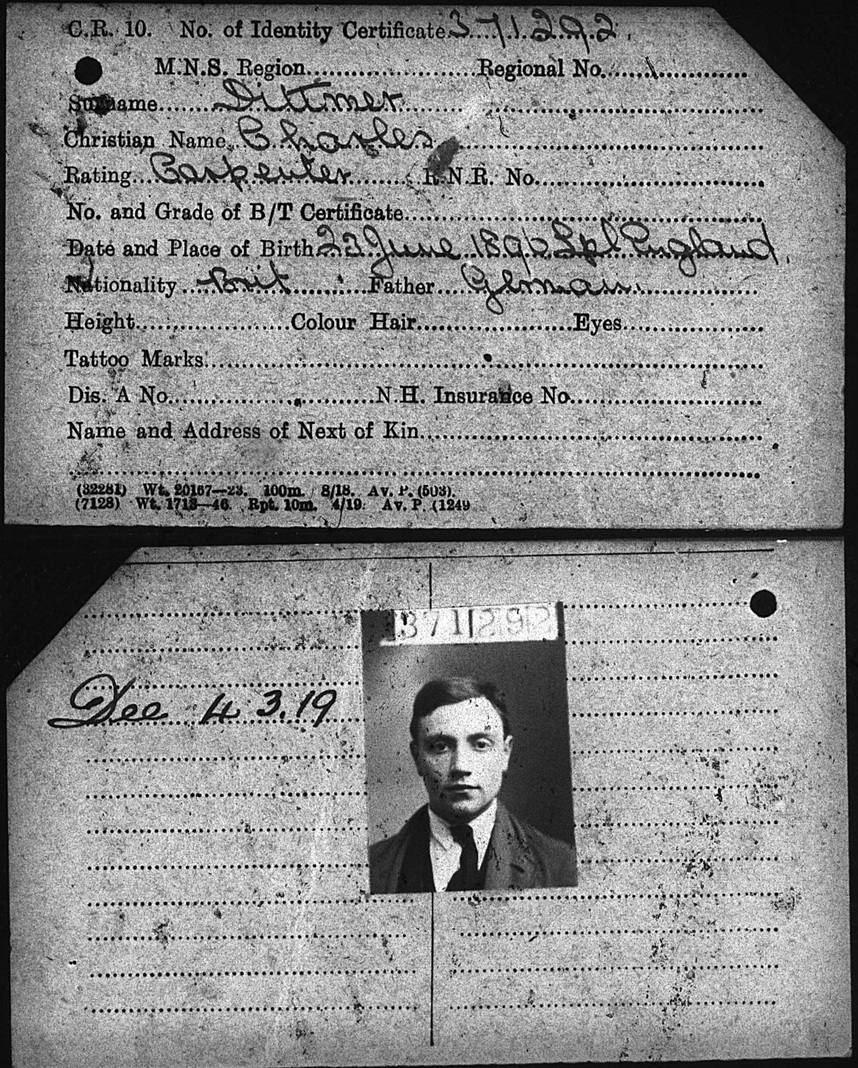 C.R. 10. No. of Identity Certificate 371292
M.N.S. Region Regional No.
Surname Dittmer
Christian Name Charles
Rating Carpenter R.N.R. No.
No. and Grade of B/T Certificate
Date and Place of Birth 23 June Lpl England
Nationality Brit Father German
Height Colour Hair Eyes
Tattoo Marks
Dis. A No. N.H. Insurance No.
Name and Address of Next of Kin
(32281) Wt. 20157—23. 100m. 8/18. Av. P. (503).
(7128) Wt. 1713—46. Rpt. 10m. 4/19. Av. P. (1249
371292
Dee 4 3.19